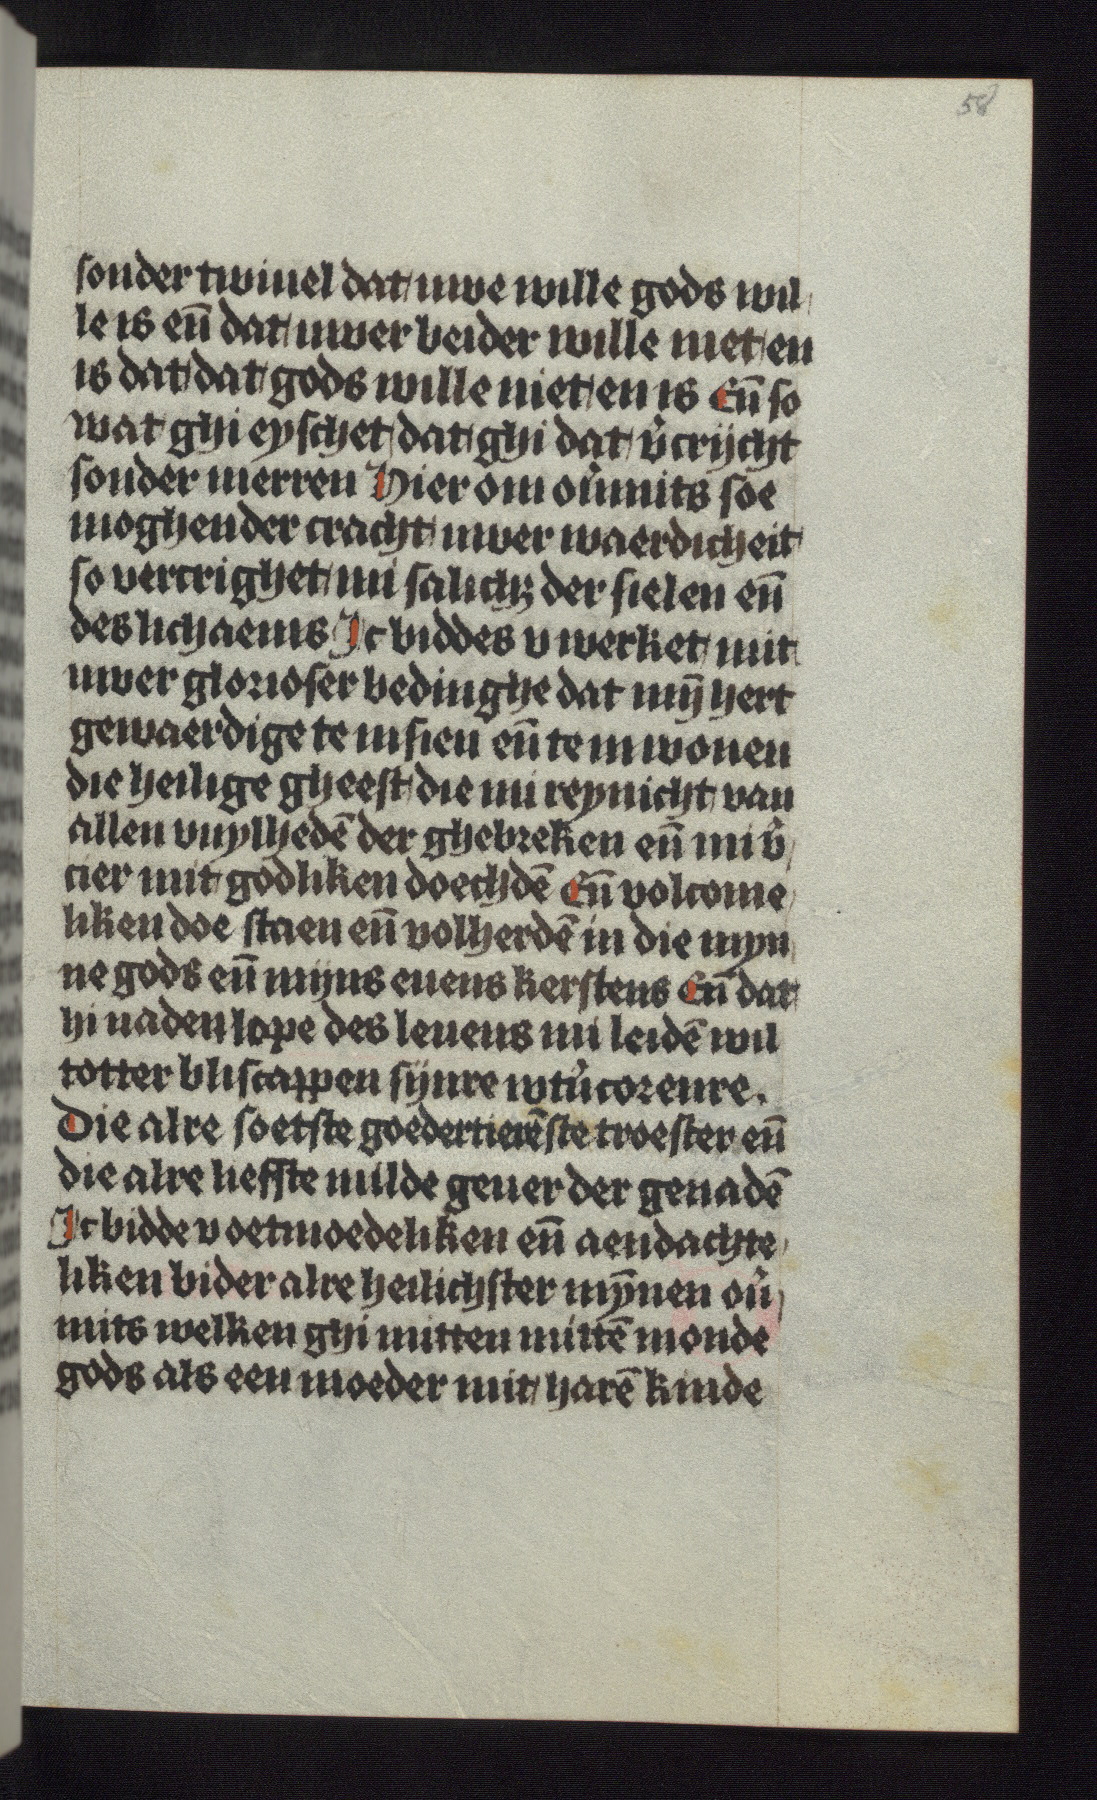 58
sonder twiuel dat uwe wille gods wil
le is en̄ dat uwer beider wille niet en
is dat dat gods wille niet en is En̄ so
wat ghi eyschet dat ghi dat v̉crijcht
sonder merren Hier om oủmits soe
moghender cracht uwer waerdicheit
so vercrighet mi salichꝫ der sielen en̄
des lichaems Ic biddes v werket mit
uwer glorioser bedinghe dat mȳ hert
gewaerdige te insien en̄ te inwonen
die heilige gheest die mi reynicht van
allen vuylhedē der ghebreken en̄ mi v̉
cier mit godliken doechdē En̄ volcome
liken doe staen en̄ volherdē in die myn
ne gods en̄ mijns euens kerstens En̄ dat
hi na den lope des leuens mi leidē wil
totter bliscappen sijnre wtủcorenre.
Die alre soetste goedertierēste troester en̄
die alre liefste milde geuer der genadē
Ic bidde v oetmoedeliken en̄ aendachte
liken bi der alre heilichster mȳnen oủ
mits welken ghi mitten mittē monde
gods als een moeder mit harē kinde